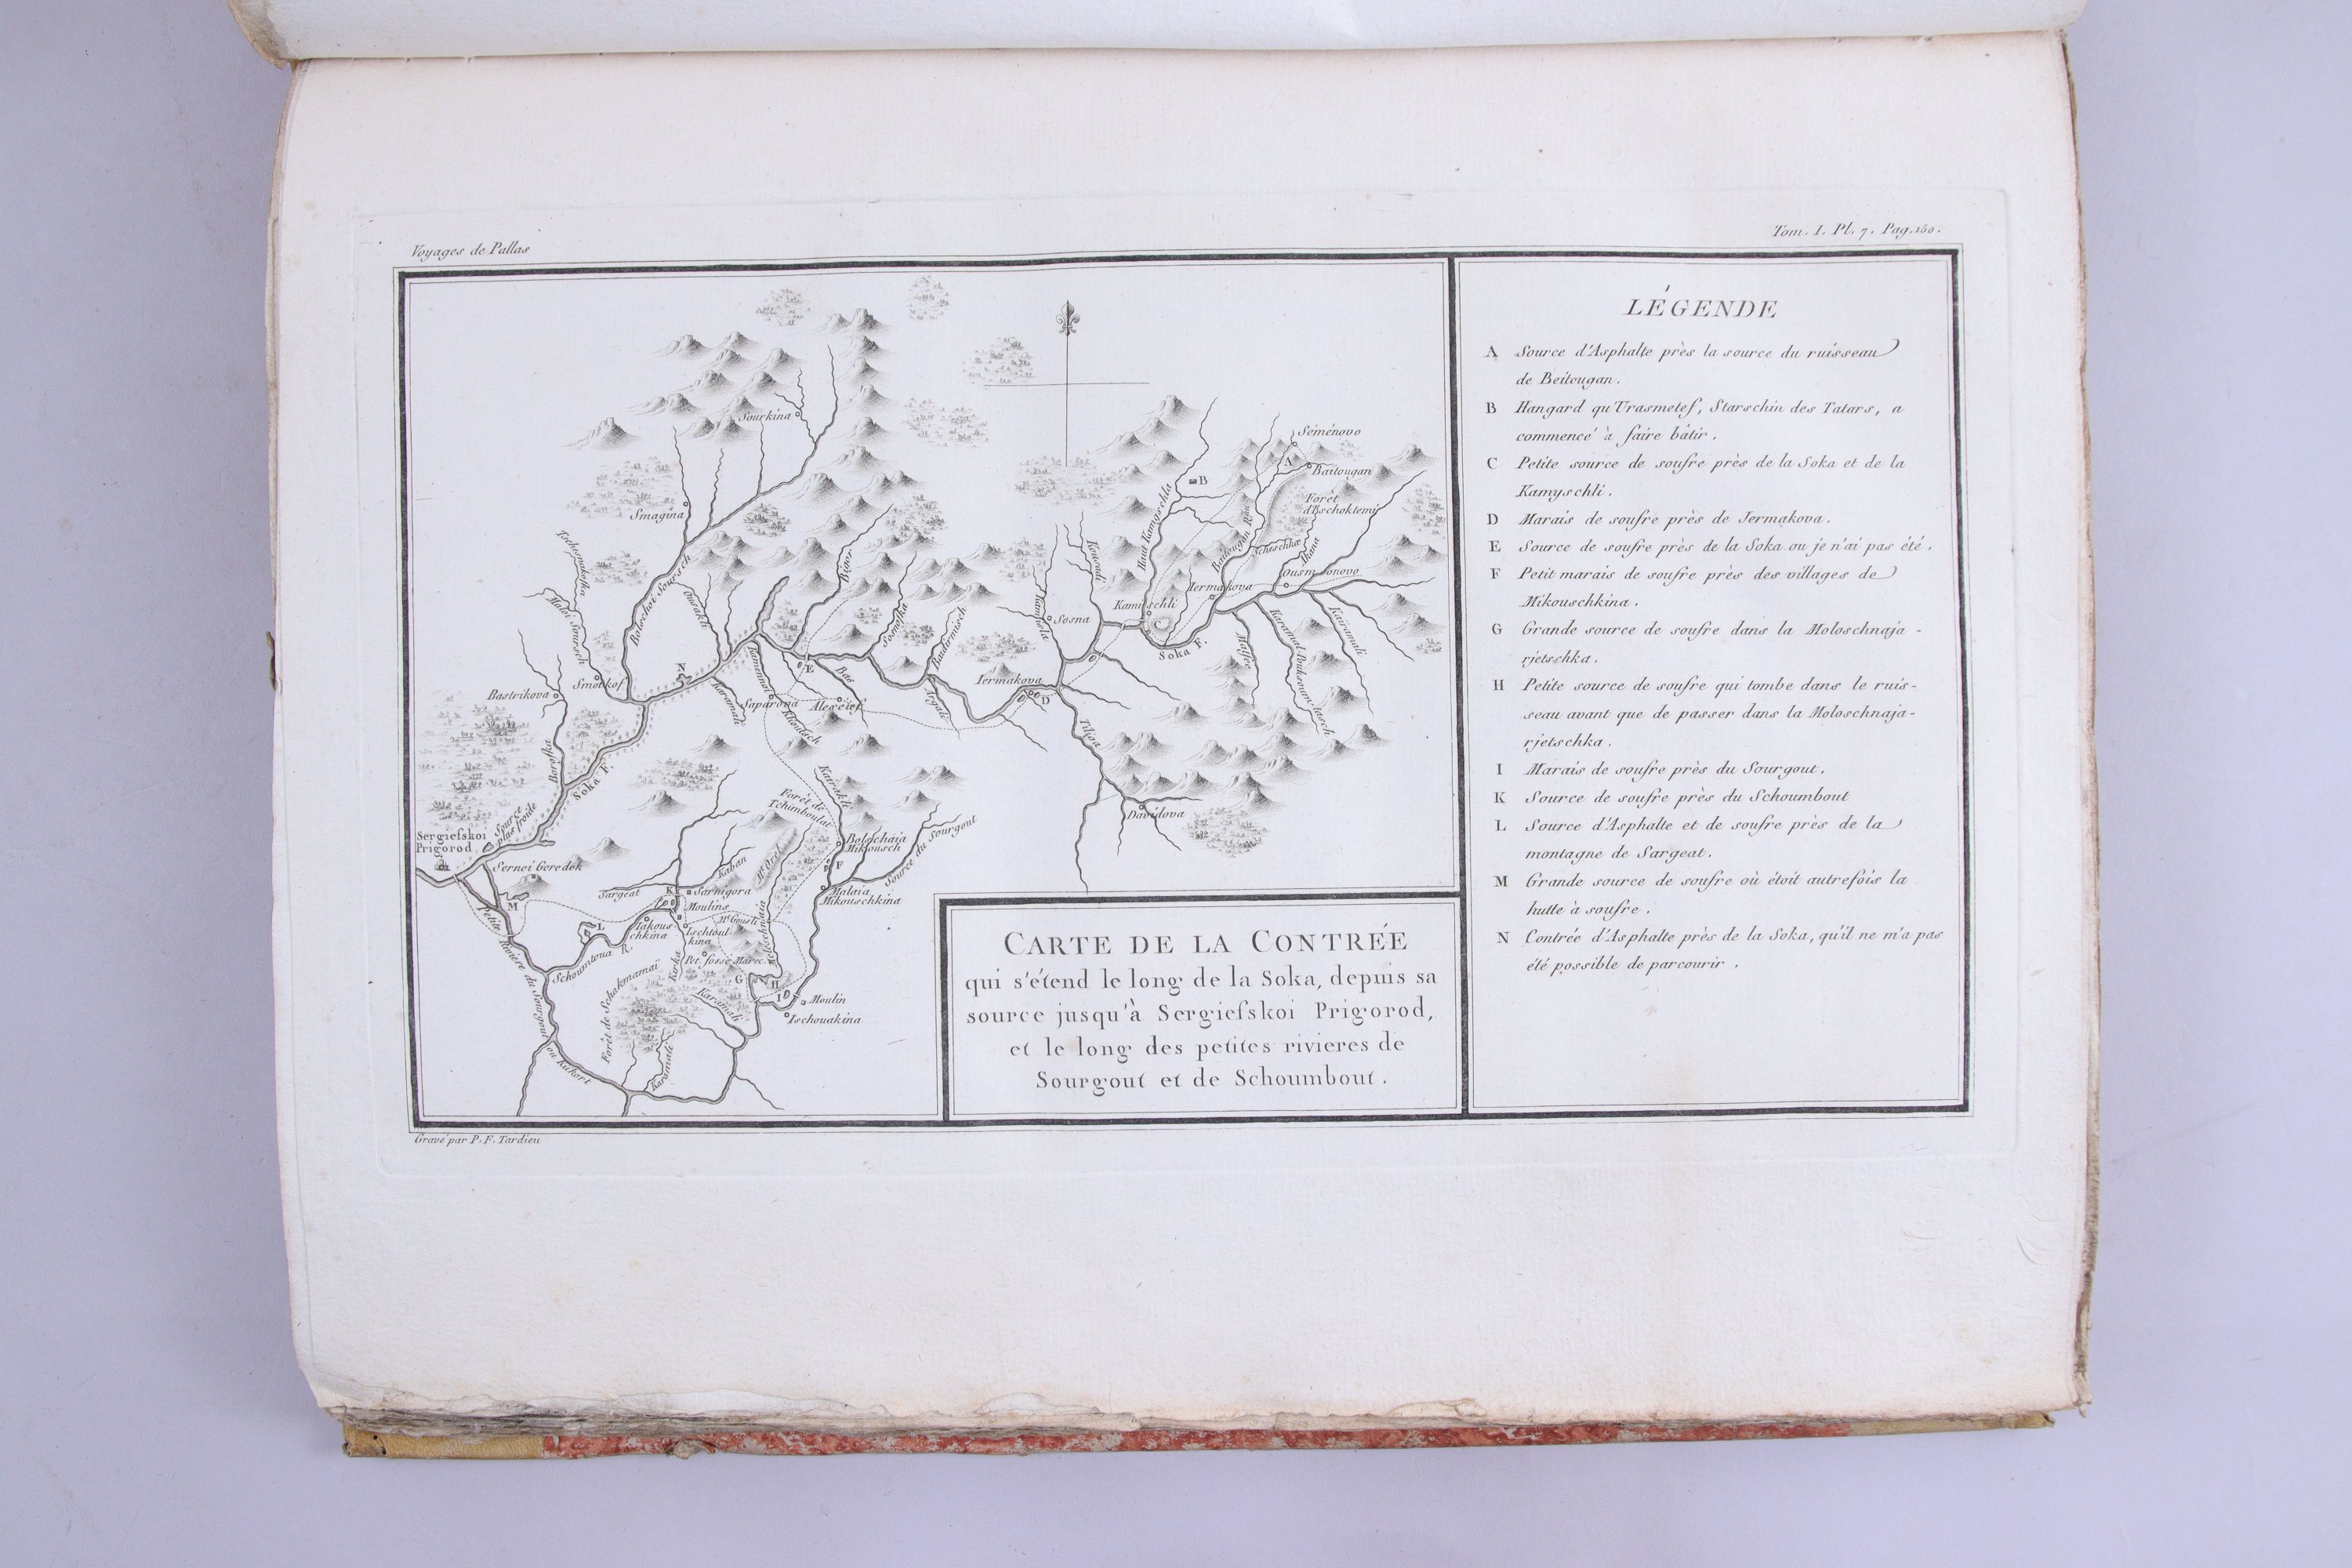 Voyages de Pallas
Tom. I. Pl. 7. Pag. 150.
LÉGENDE
A Source d'Asphalte près la source du ruisseau
de Beitougan.
B Hangard qu'Urasmetef, Starschin des Tatars, a
commencé à faire bâtir.
C Petite source de soufre près de la Soka et de la
Kamyschli.
D Marais de soufre près de Jermakova.
E Source de soufre près de la Soka ou je n'ai pas été.
F Petit marais de soufre près des villages de
Mikouschkina.
G Grande source de soufre dans la Moloschnaja-
rjetschka.
H Petite source de soufre qui tombe dans le ruis-
seau avant que de passer dans la Moloschnaja-
rjetschka.
I Marais de soufre près du Sourgout.
K Source de soufre près du Schoumbout
L Source d'Asphalte et de soufre près de la
montagne de Sargeat.
M Grande source de soufre où étoit autrefois la
hutte à soufre.
N Contrée d'Asphalte près de la Soka, qu'il ne m'a pas
été possible de parcourir.
Sourkina
Smagina
Bolschoi Soursch
Maloi Soursch
Smolkof
Bastrikova
Borofka
Soka F.
Source
plus froide
Sergiefskoi
Prigorod
Sernoi Gorodok
N
Ousakli
Karamali
Kamennoi
Saparova
Alexeief
E
Bas
Sosnofka
Baidirmisch
Argali
Iermakova
D
Sosna
Haut Kamyschla
B
Kamischli
Soka F.
Iermakova
Baitougan Riv.
Séménovo
A
Baitougan
Forêt
Ikana
Kairamali
Tilga
Davidova
Forêt de
Tchimboulat
Bolschaia
Mikousch
F
Malaia
Mikouschkina
Source du Sourgout
Kaban
Sargeat
K
Sarnigora
Moulins
L
M
Petite Riviere du Sourgout ou Kukort
Forêt de Schakmamaï
Karamali
Karamali
G
H
I
Moulin
Ischouakina
CARTE DE LA CONTRÉE
qui s'étend le long de la Soka, depuis sa
source jusqu'à Sergiefskoi Prigorod,
et le long des petites rivieres de
Sourgout et de Schoumbout.
Gravé par P. F. Tardieu